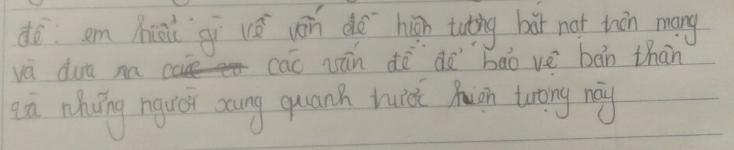 đề: em hiểu gì về vấn đề hiện tượng bắt nạt trên mạng
và đưa ra các vấn đề để bảo vệ bản thân
và những người xung quanh trước hiện tượng này